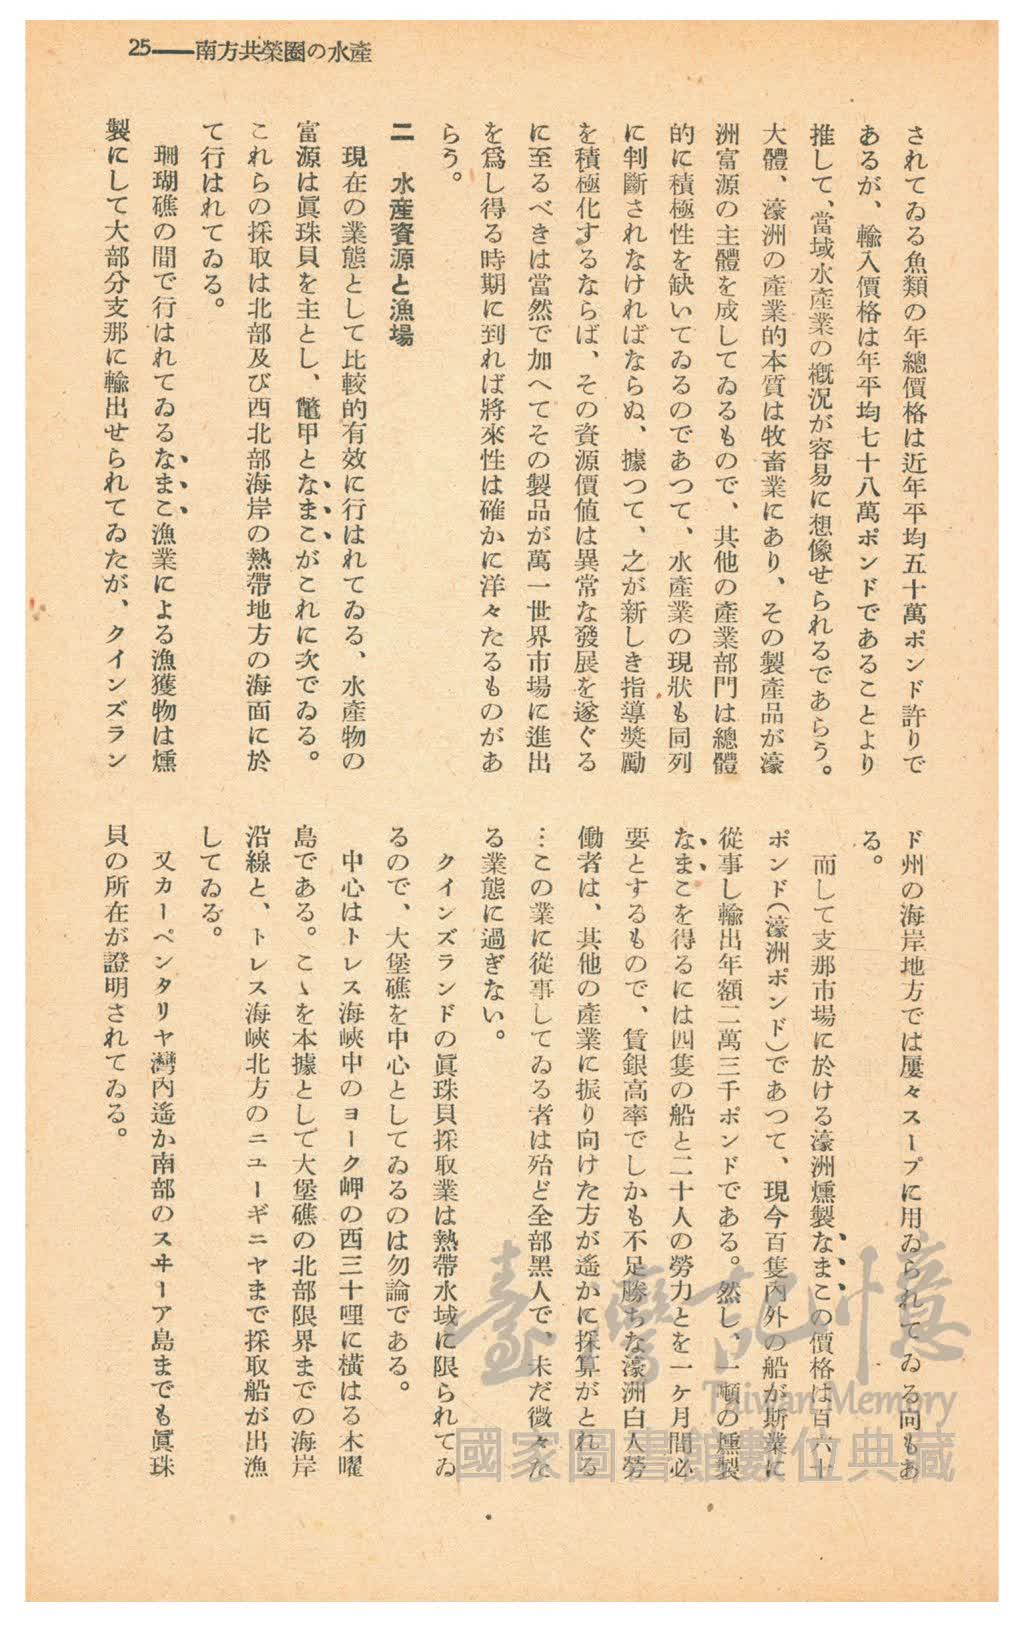 25——南方共榮圈の水產
されてゐる魚類の年總價格は近年平均五十萬ポンド許りで
あるが、輸入價格は年平均七十八萬ポンドであることより
推して、當域水產業の槪況が容易に想像せられるであらう。
大體、濠洲の產業的本質は牧畜業にあり、その製產品が濠
洲富源の主體を成してゐるもので、其他の產業部門は總體
的に積極性を缺いてゐるのであつて、水產業の現狀も同列
に判斷されなければならぬ、據つて、之が新しき指導奬勵
を積極化するならば、その資源價値は異常な發展を遂ぐる
に至るべきは當然で加へてその製品が萬一世界市場に進出
を爲し得る時期に到れば將來性は確かに洋々たるものがあ
らう。
二　水產資源と漁場
現在の業態として比較的有效に行はれてゐる、水產物の
富源は眞珠貝を主とし、鼈甲となまこがこれに次でゐる。
これらの採取は北部及び西北部海岸の熱帶地方の海面に於
て行はれてゐる。
珊瑚礁の間で行はれてゐるなまこ漁業による漁獲物は燻
製にして大部分支那に輸出せられてゐたが、クインズラン
ド州の海岸地方では屢々スープに用ゐられてゐる向もあ
る。
而して支那市場に於ける濠洲燻製なまこの價格は百六十
ポンド(濠洲ポンド)であつて、現今百隻內外の船が斯業に
從事し輸出年額二萬三千ポンドである。然し、一噸の燻製
なまこを得るには四隻の船と二十人の勞力とを一ケ月間必
要とするもので、賃銀高率でしかも不足勝ちな濠洲白人勞
働者は、其他の產業に振り向けた方が遙かに採算がとれる
…この業に從事してゐる者は殆ど全部黑人で、未だ微々た
る業態に過ぎない。
クインズランドの眞珠貝採取業は熱帶水域に限られてゐ
るので、大堡礁を中心としてゐるのは勿論である。
中心はトレス海峽中のヨーク岬の西三十哩に橫はる木曜
島である。こゝを本據として大堡礁の北部限界までの海岸
沿線と、トレス海峽北方のニユーギニヤまで採取船が出漁
してゐる。
又カーペンタリヤ灣內遙か南部のスヰーア島までも眞珠
貝の所在が證明されてゐる。
臺灣記憶
Taiwan Memory
國家圖書館數位典藏